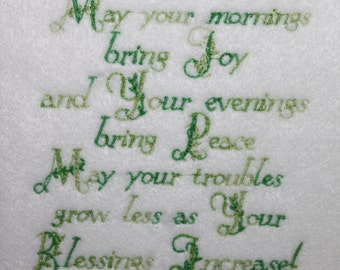 May your mornings
bring Joy
and Your evenings
bring Peace
May your troubles
grow less as Your
Blessings Increase!